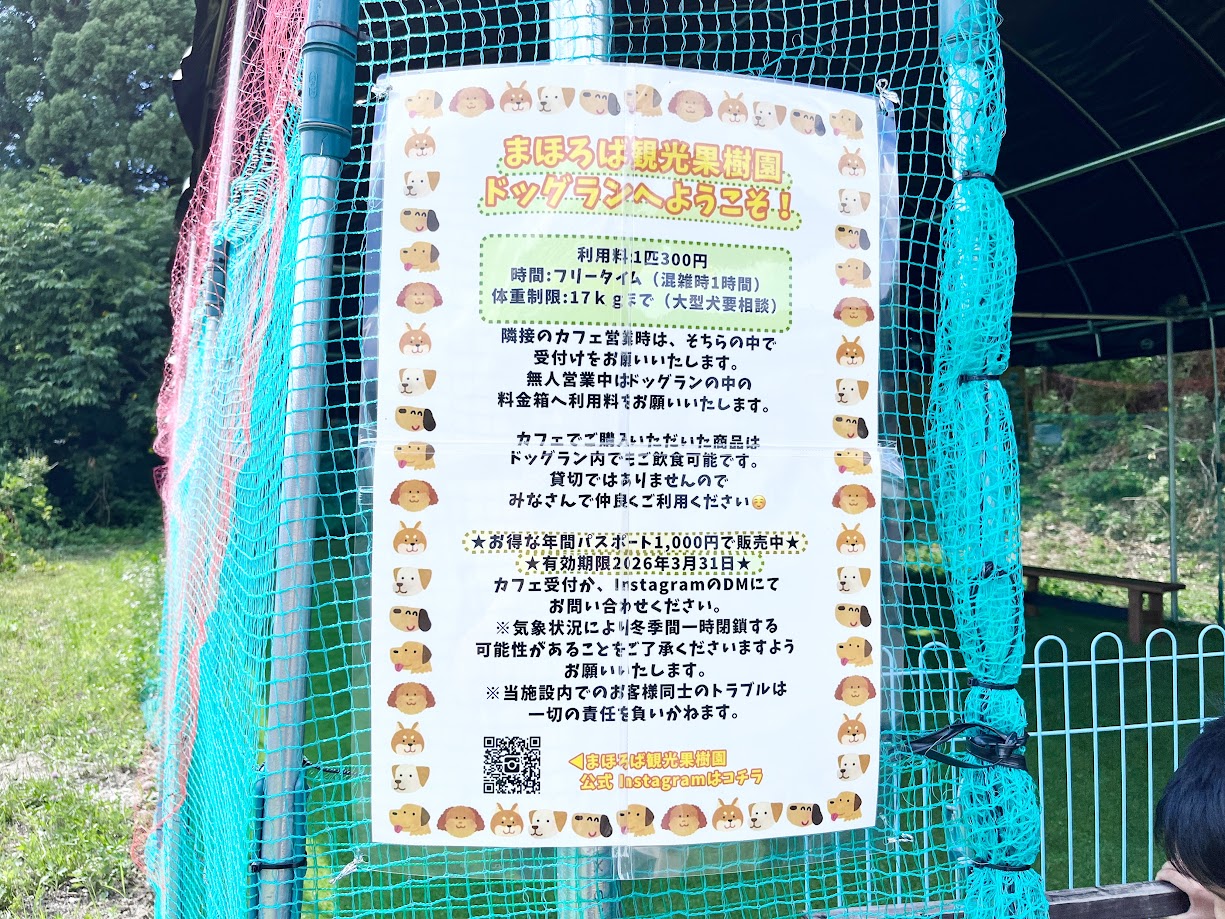 まほろば観光果樹園
ドッグランへようこそ！
利用料:1匹300円
時間:フリータイム（混雑時1時間）
体重制限:17ｋｇまで（大型犬要相談）
隣接のカフェ営業時は、そちらの中で
受付けをお願いいたします。
無人営業中はドッグランの中の
料金箱へ利用料をお願いいたします。
カフェでご購入いただいた商品は
ドッグラン内でもご飲食可能です。
貸切ではありませんので
みなさんで仲良くご利用ください☺️
★お得な年間パスポート1,000円で販売中★
★有効期限2026年3月31日★
カフェ受付か、InstagramのDMにて
お問い合わせください。
※気象状況により冬季間一時閉鎖する
可能性があることをご了承くださいますよう
お願いいたします。
※当施設内でのお客様同士のトラブルは
一切の責任を負いかねます。
◀まほろば観光果樹園
公式 Instagramはコチラ